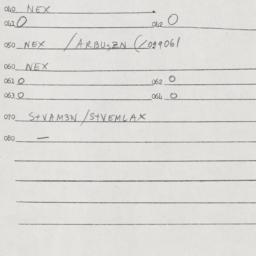 040 NEX
041 0 042 0
050 NEX /ARBUSZN (/099061
060 NEX
061 0 062 0
063 0 064 0
070 S+VAM3N/S+VEMLAX
080 —